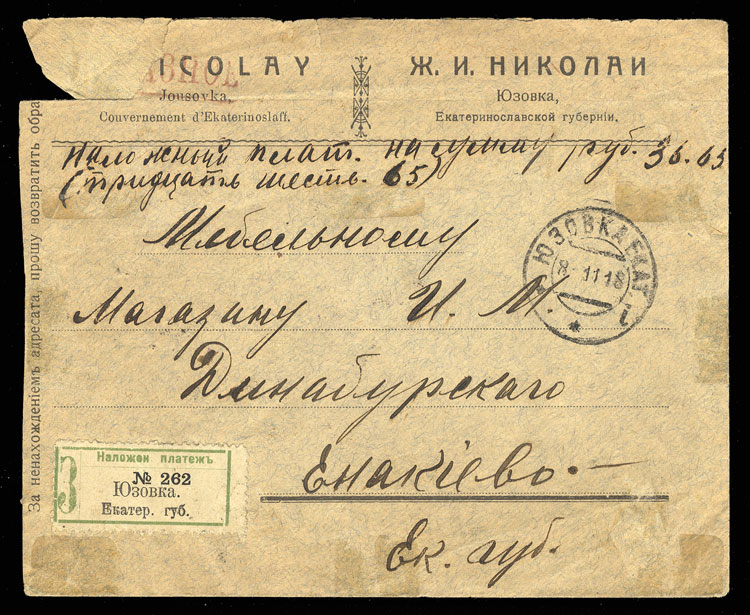 ICOLAY
Jousovka,
Couvernement d'Ekaterinoslaff.
Ж. И. НИКОЛАИ
Юзовка,
Екатеринославской губерніи.
Наложный плат. на сумму руб. 36.65
(тридцать шесть. 65)
Мебельному
Магазину И. М.
Динабурскаго
Енакіево.
Ек. губ.
ЮЗОВКА ЕКАТ.
8 11 18
Наложен платежъ
З
№ 262
Юзовка.
Екатер. губ.
За ненахожденіемъ адресата, прошу возвратить обра